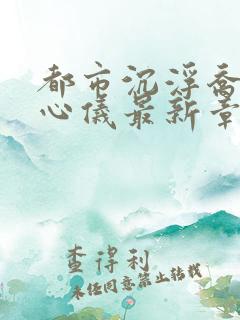 都市沉浮乔
心仪最新章
查得利
未经同意禁止转载